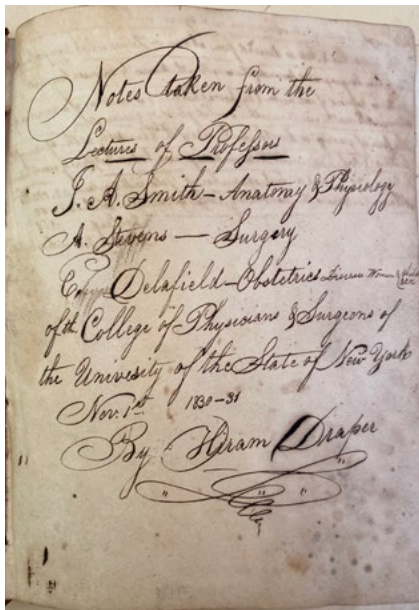 Notes taken from the
Lectures of Professors
J. A. Smith – Anatomy & Physiology
A. Stevens — Surgery
Delafield – Obstetrics Diseases Women &
of th College of Physicians & Surgeons of
the Univesity of the State of New York
Nov. 1st 1830–31
By Hiram Draper